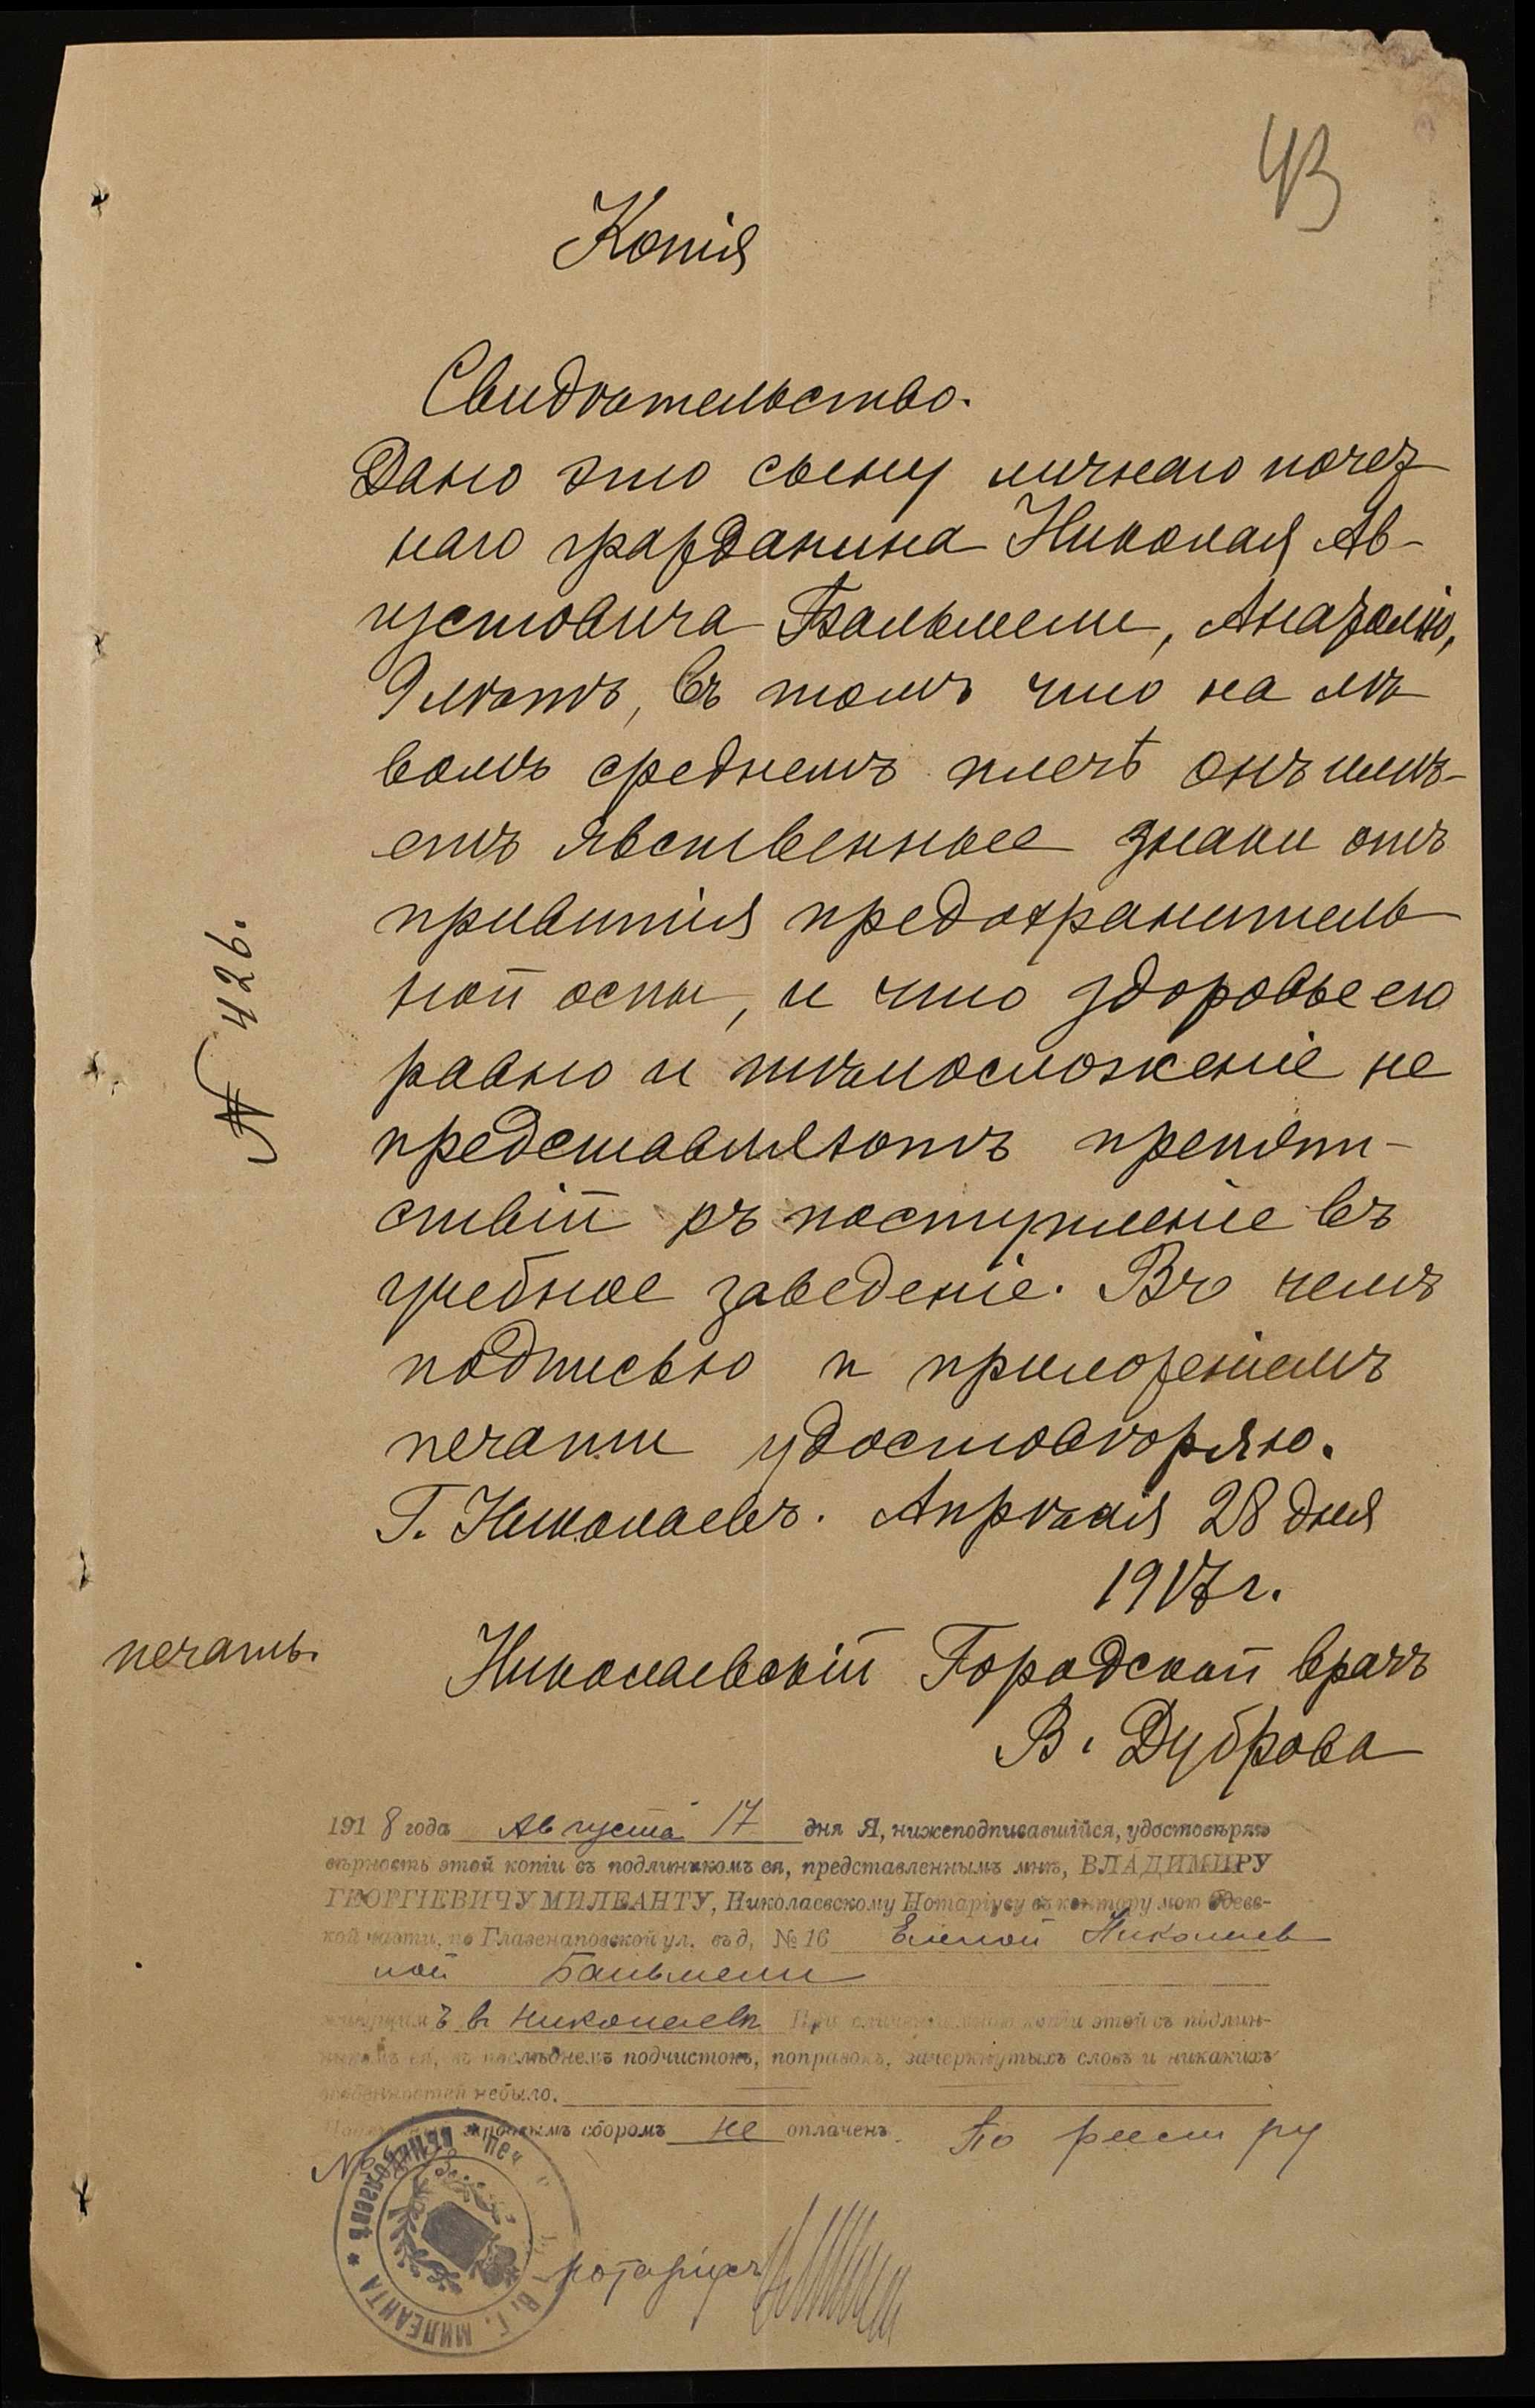 43
Копія
Свидѣтельство.
Дано это сыну личнаго почет
наго гражданина Николая Ав-
густовича Бальмели, Анатолію,
9 лѣтъ, въ томъ что на лѣ
вомъ среднемъ плечѣ онъ имѣ-
етъ явственные знаки отъ
привитія предохранитель
ной оспы, и что здоровье его
равно и тѣлосложеніе не
представляютъ препят-
ствій къ поступленіе въ
учебное заведеніе. Въ чемъ
подписью и приложеніемъ
печати удостовѣряю.
Г. Николаевъ. Апрѣля 28 дня
1917 г.
№ 426.
печать.
Николаевскій Городской врачъ
В. Дуброва
1918 года Августа 17 дня Я, нижеподписавшійся, удостовѣряю
вѣрность этой копіи съ подлинникомъ ея, представленнымъ мнѣ, ВЛАДИМИРУ
ГЕОРГІЕВИЧУ МИЛЕАНТУ, Николаевскому Нотаріусу въ контору мою Одесс-
кой части, по Глазенаповской ул. въ д, № 16 Еленой Николаев
ной Бальмели
живущимъ в Николаевѣ При сличеніи мною копіи этой съ подлин-
никомъ ея, въ послѣднемъ подчистокъ, поправокъ, зачеркнутыхъ словъ и никакихъ
особенностей небыло.
сборомъ не оплаченъ. По реестру
№
В. Г. МИЛЕАНТА
Нотаріусъ